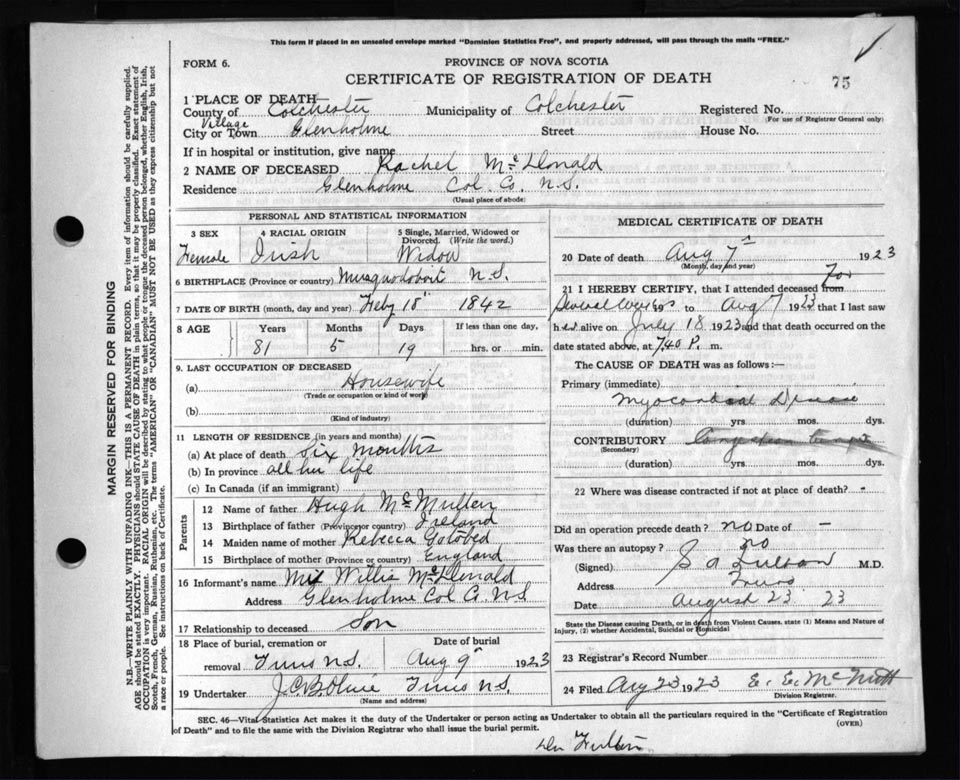 This form if placed in an unsealed envelope marked "Dominion Statistics Free", and properly addressed, will pass through the mails "FREE."
FORM 6.
PROVINCE OF NOVA SCOTIA
CERTIFICATE OF REGISTRATION OF DEATH
75
1 PLACE OF DEATH
County of Colchester Municipality of Colchester Registered No.
(For use of Registrar General only)
Village
City or Town Glenholme Street House No.
If in hospital or institution, give name
2 NAME OF DECEASED Rachel McDonald
Residence Glenholme Col. Co. N.S.
(Usual place of abode)
PERSONAL AND STATISTICAL INFORMATION
3 SEX 4 RACIAL ORIGIN 5 Single, Married, Widowed or Divorced. (Write the word.)
Female Irish Widow
6 BIRTHPLACE (Province or country) Musquodoboit N.S.
7 DATE OF BIRTH (month, day and year) Feby 18" 1842
8 AGE Years Months Days If less than one day,
81 5 19 hrs. or min.
9. LAST OCCUPATION OF DECEASED
(a) Housewife
(Trade or occupation or kind of work)
(b)
(Kind of industry)
11 LENGTH OF RESIDENCE (in years and months)
(a) At place of death Six Months
(b) In province all her life
(c) In Canada (if an immigrant)
Parents
12 Name of father Hugh McMullen
13 Birthplace of father (Province or country) Ireland
14 Maiden name of mother Rebecca Gotobed
15 Birthplace of mother (Province or country) England
16 Informant's name Willis McDonald
Address Glenholme Col Co. N.S
17 Relationship to deceased Son
18 Place of burial, cremation or Date of burial
removal Truro N.S. Aug 9" 1923
19 Undertaker Truro N.S.
(Name and address)
MEDICAL CERTIFICATE OF DEATH
20 Date of death Aug 7 1923
(Month, day and year)
21 I HEREBY CERTIFY, that I attended deceased from For
Several to Aug 7 1923 that I last saw
her alive on July 18 1923 and that death occurred on
date stated above, at 7.40 P. m.
The CAUSE OF DEATH was as follows:—
Primary (immediate)
Myocardial Disease
(duration) yrs mos. dys.
CONTRIBUTORY
(Secondary)
(duration) yrs. mos. dys.
22 Where was disease contracted if not at place of death? -
Did an operation precede death? no Date of -
Was there an autopsy? no
(Signed) S A Fulton M.D.
Address Truro
Date August 23 23
State the Disease causing Death, or in death from Violent Causes, state (1) Means and Nature of Injury, (2) whether Accidental, Suicidal or Homicidal
23 Registrar's Record Number
24 Filed Aug 23 1923 E. E. McNutt
Division Registrar.
SEC. 46—Vital Statistics Act makes it the duty of the Undertaker or person acting as Undertaker to obtain all the particulars required in the "Certificate of Registration
of Death" and to file the same with the Division Registrar who shall issue the burial permit.
(OVER)
Dr Fulton
MARGIN RESERVED FOR BINDING
N.B.—WRITE PLAINLY WITH UNFADING INK—THIS IS A PERMANENT RECORD. Every item of information should be carefully supplied.
AGE should be stated EXACTLY. PHYSICIANS should STATE CAUSE OF DEATH in plain terms, so that it may be properly classified. Exact statement of
OCCUPATION is very important. RACIAL ORIGIN will be described by stating to what people or tongue the deceased person belonged, whether English, Irish,
Scotch, French, German, Russian, Ruthenian, etc. The terms "AMERICAN" OR "CANADIAN" MUST NOT BE USED as they express citizenship but not
a race or people. See instructions on back of Certificate.